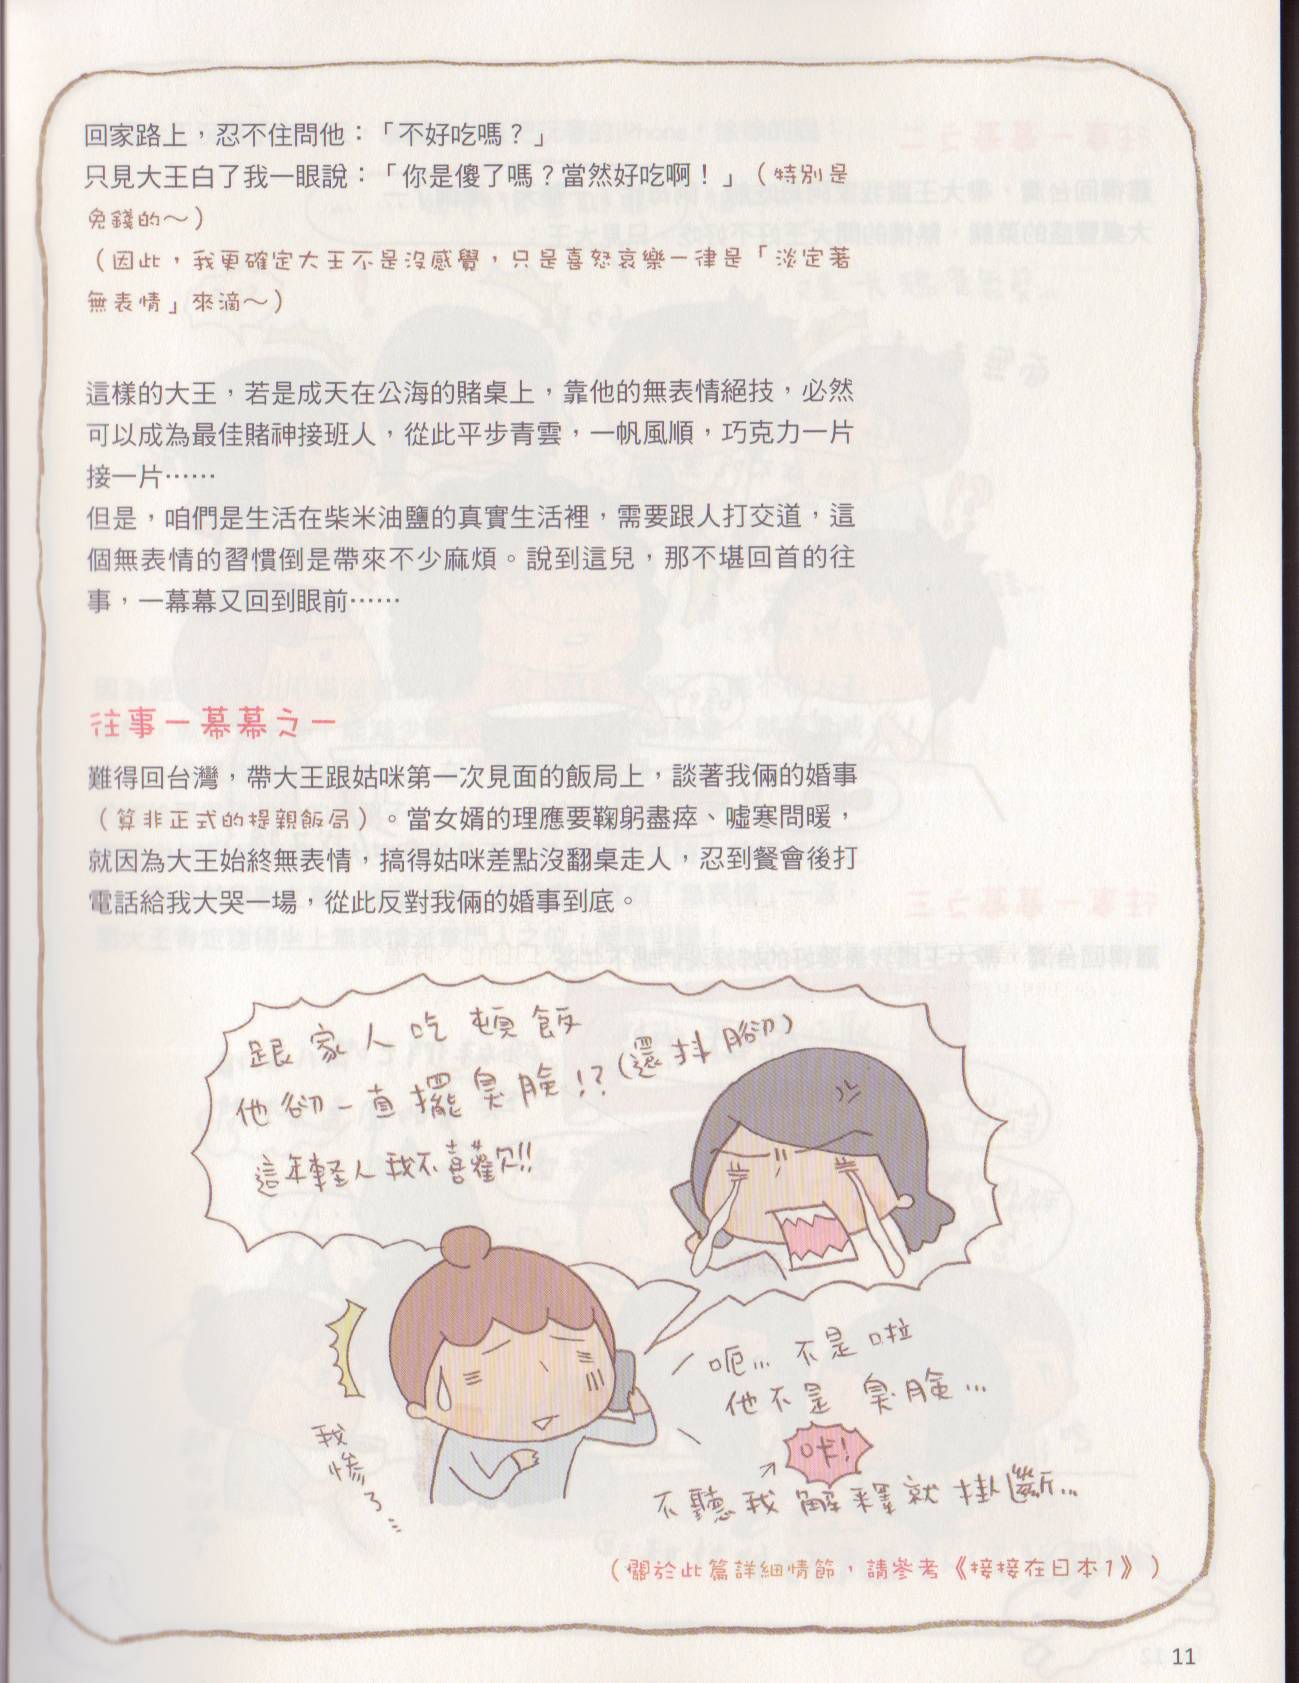 回家路上，忍不住問他：「不好吃嗎？」
只見大王白了我一眼說：「你是傻了嗎？當然好吃啊！」（特別是
免錢的～）
（因此，我更確定大王不是沒感覺，只是喜怒哀樂一律是「淡定著
無表情」來滴～）
這樣的大王，若是成天在公海的賭桌上，靠他的無表情絕技，必然
可以成為最佳賭神接班人，從此平步青雲，一帆風順，巧克力一片
接一片……
但是，咱們是生活在柴米油鹽的真實生活裡，需要跟人打交道，這
個無表情的習慣倒是帶來不少麻煩。說到這兒，那不堪回首的往
事，一幕幕又回到眼前……
往事一幕幕之一
難得回台灣，帶大王跟姑咪第一次見面的飯局上，談著我倆的婚事
（算非正式的提親飯局）。當女婿的理應要鞠躬盡瘁、噓寒問暖，
就因為大王始終無表情，搞得姑咪差點沒翻桌走人，忍到餐會後打
電話給我大哭一場，從此反對我倆的婚事到底。
跟家人吃頓飯
他卻一直擺臭臉!?（還抖腳）
這年輕人我不喜歡!!
呃… 不是啦
他不是臭臉…
咔!
不聽我解釋就掛斷…
我慘了…
（關於此篇詳細情節，請參考《接接在日本1》）
11